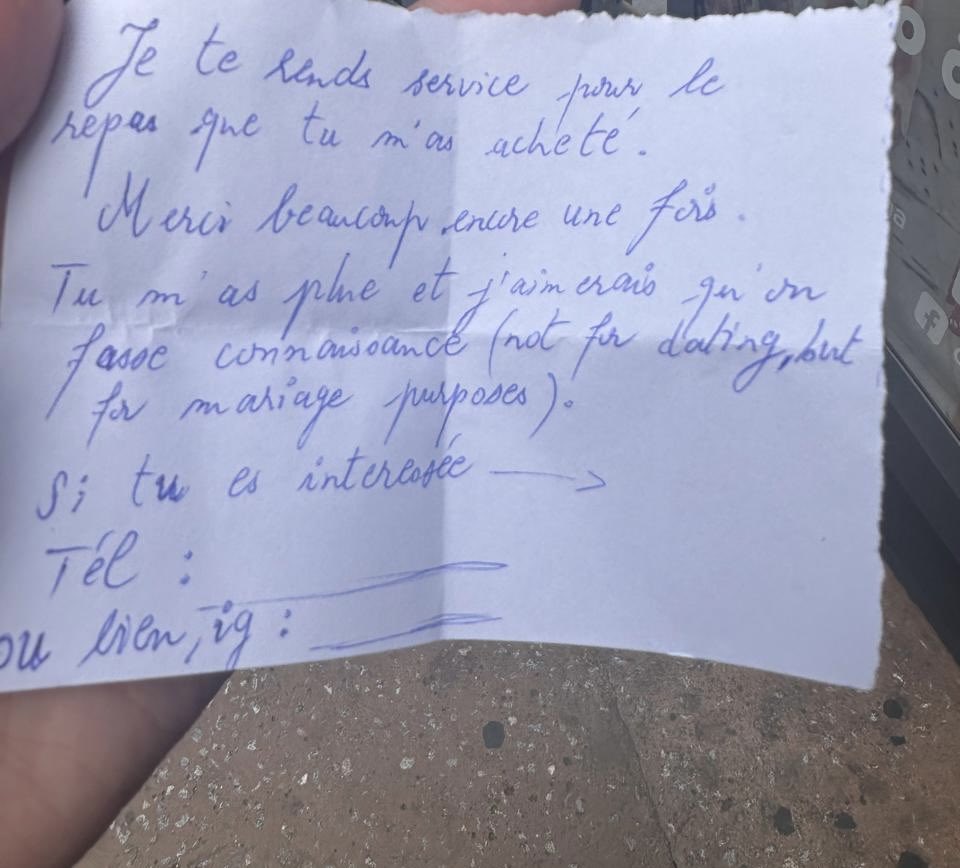 Je te rends service pour le
repas que tu m'as acheté.
Merci beaucoup, encore une fois.
Tu m'as plue et j'aimerais qu'on
fasse connaissance (not for dating, but
for mariage purposes).
Si tu es interessée →
Tél :
ou bien, ig :